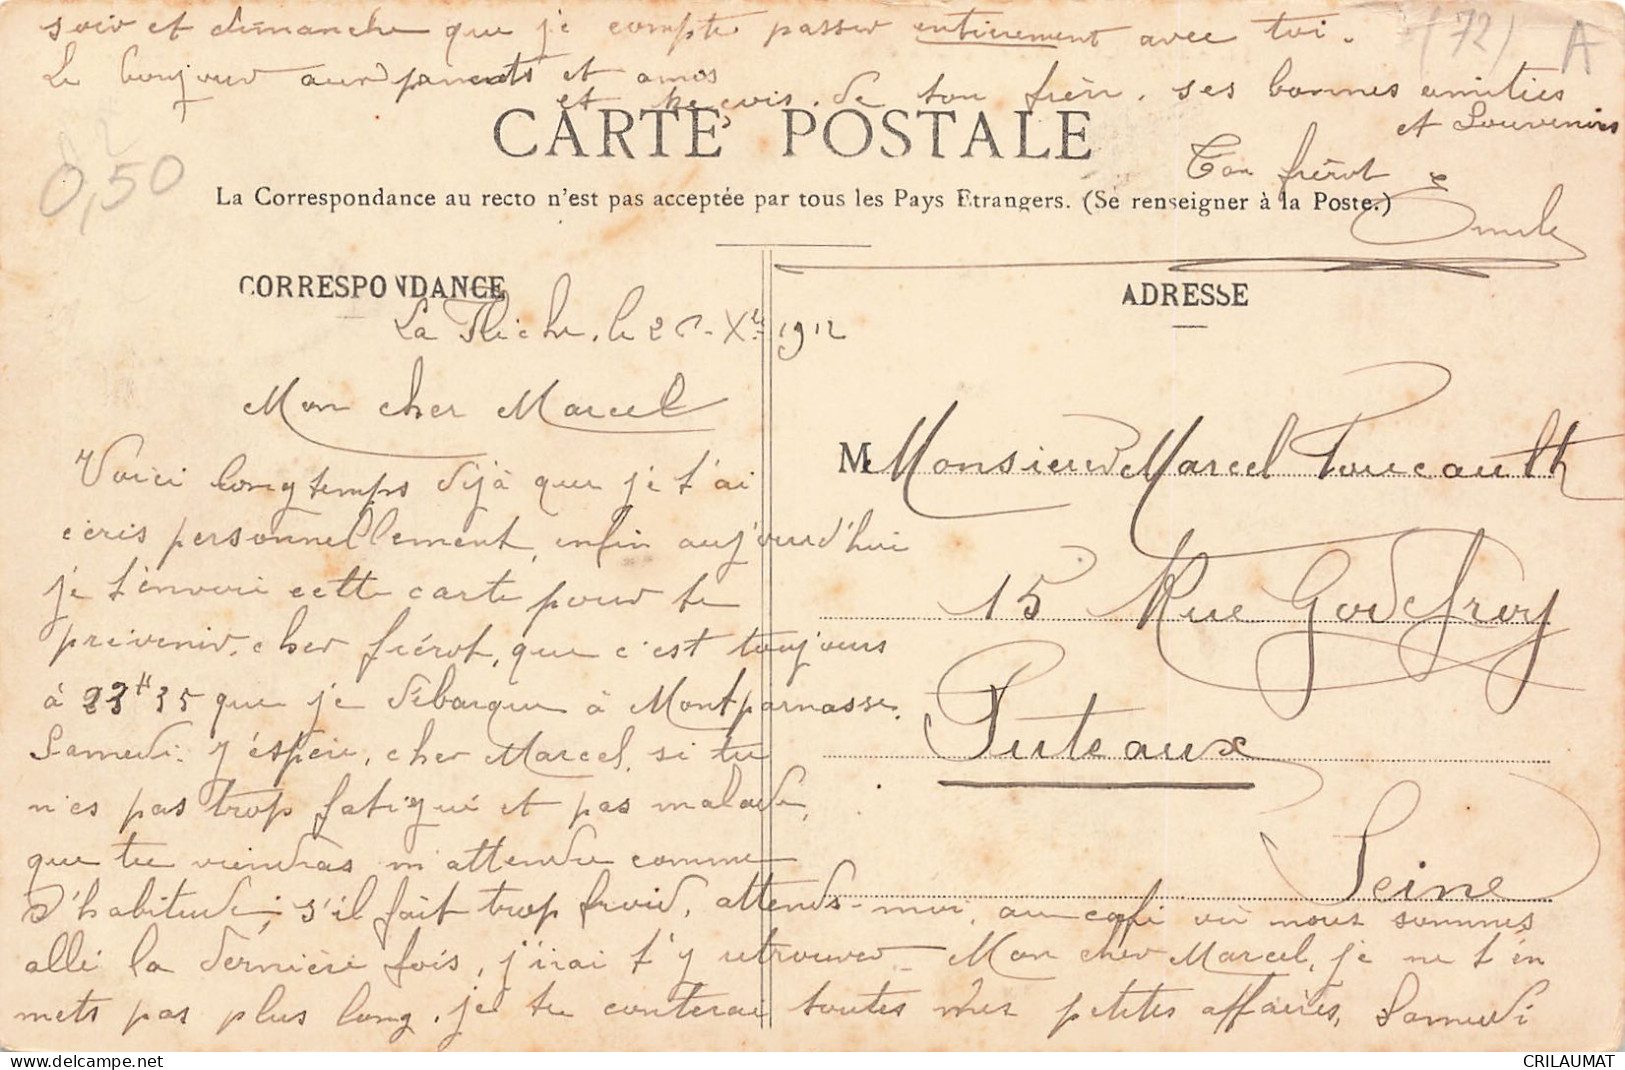 soir et dimanche que je compte passer entièrement avec toi.
(72) A
Le bonjour aux parents et amis
et reçois de ton frère, ses bonnes amitiés
et Souvenirs
CARTE POSTALE
0,50
Ton frérot
La Correspondance au recto n'est pas acceptée par tous les Pays Etrangers. (Se renseigner à la Poste.)
Emile
CORRESPONDANCE
ADRESSE
La Flèche, le Xbre 1912
Mon cher Marcel
Voici longtemps déjà que je t'ai
écris personnellement, enfin aujourd'hui
je t'envoie cette carte pour te
prévenir, cher frérot, que c'est toujours
à 23H35 que je débarque à Montparnasse.
Samedi. J'espère, cher Marcel, si tu
n'es pas trop fatigué et pas malade,
que tu viendras m'attendre comme
d'habitude; s'il fait trop froid, attends-moi, au café où nous sommes
allé la dernière fois, j'irai t'y retrouver. Mon cher Marcel, je ne t'en
mets pas plus long, je te conterai toutes mes petites affaires, Samedi
M Monsieur Marcel Foucault
15 Rue Godefroy
Puteaux
Seine
CRILAUMAT